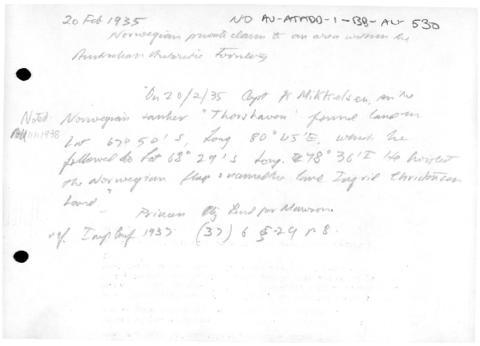 20 Feb 1935 NO AU-ATADD-1-BB-AU-530
Norwegian private claim to an area within the
Australian Antarctic Territory
"On 20/2/35 Capt K Mikkelsen, in the
Noted Norwegian tanker "Thorshaven" found land in
1938 Lat 67° 50'S, Long 80° 45'E, which he
followed to Lat 68° 29'S Long. 78° 36'E He hoisted
the Norwegian flag & named the land Ingrid Christensen
Land"
Princess Eliz Land for Mawson
ref. 1937 (37) 6 § 24 8.